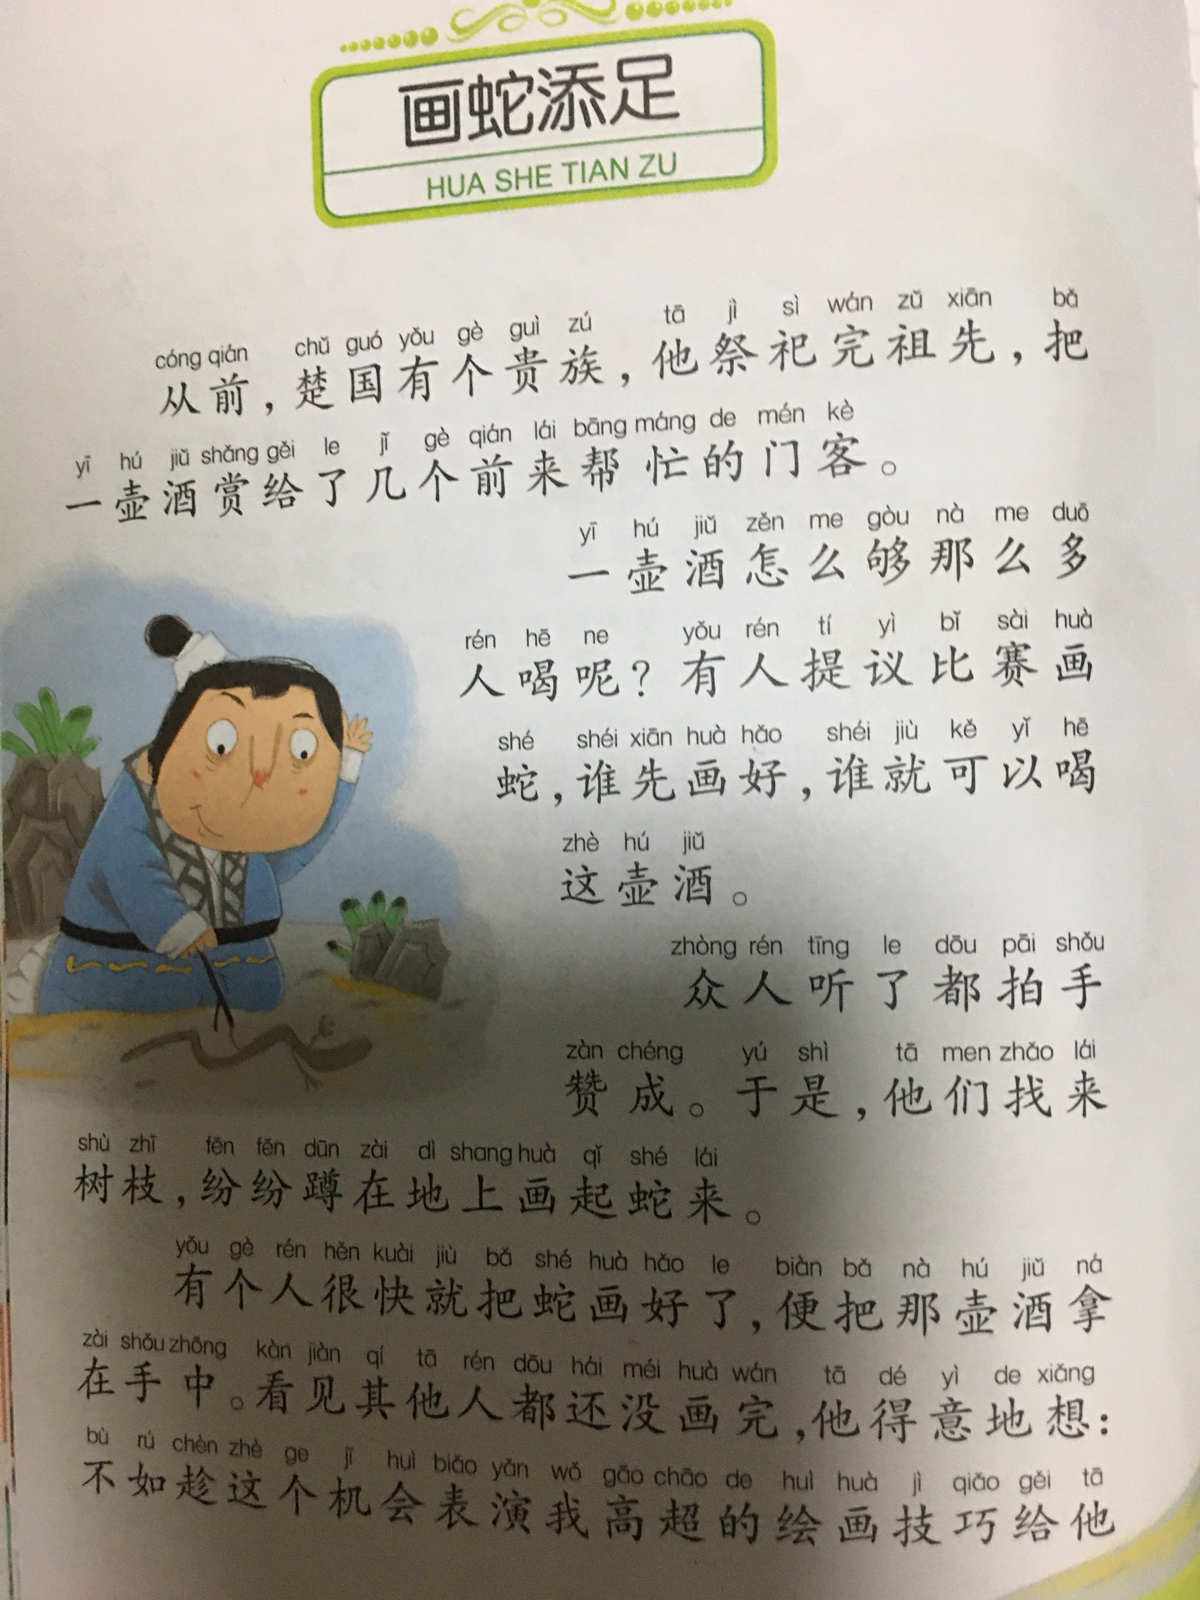 画蛇添足
HUA SHE TIAN ZU
cóng qián chǔ guó yǒu gè guì zú tā jì sì wán zǔ xiān bǎ
从前，楚国有个贵族，他祭祀完祖先，把
yī hú jiǔ shǎng gěi le jǐ gè qián lái bāng máng de mén kè
一壶酒赏给了几个前来帮忙的门客。
yī hú jiǔ zěn me gòu nà me duō
一壶酒怎么够那么多
rén hē ne yǒu rén tí yì bǐ sài huà
人喝呢？有人提议比赛画
shé shéi xiān huà hǎo shéi jiù kě yǐ hē
蛇，谁先画好，谁就可以喝
zhè hú jiǔ
这壶酒。
zhòng rén tīng le dōu pāi shǒu
众人听了都拍手
zàn chéng yú shì tā men zhǎo lái
赞成。于是，他们找来
shù zhī fēn fēn dūn zài dì shang huà qǐ shé lái
树枝，纷纷蹲在地上画起蛇来。
yǒu gè rén hěn kuài jiù bǎ shé huà hǎo le biàn bǎ nà hú jiǔ ná
有个人很快就把蛇画好了，便把那壶酒拿
zài shǒu zhōng kàn jiàn qí tā rén dōu hái méi huà wán tā dé yì de xiǎng
在手中。看见其他人都还没画完，他得意地想：
bù rú chèn zhè ge jī huì biǎo yǎn wǒ gāo chāo de huì huà jì qiǎo gěi tā
不如趁这个机会表演我高超的绘画技巧给他